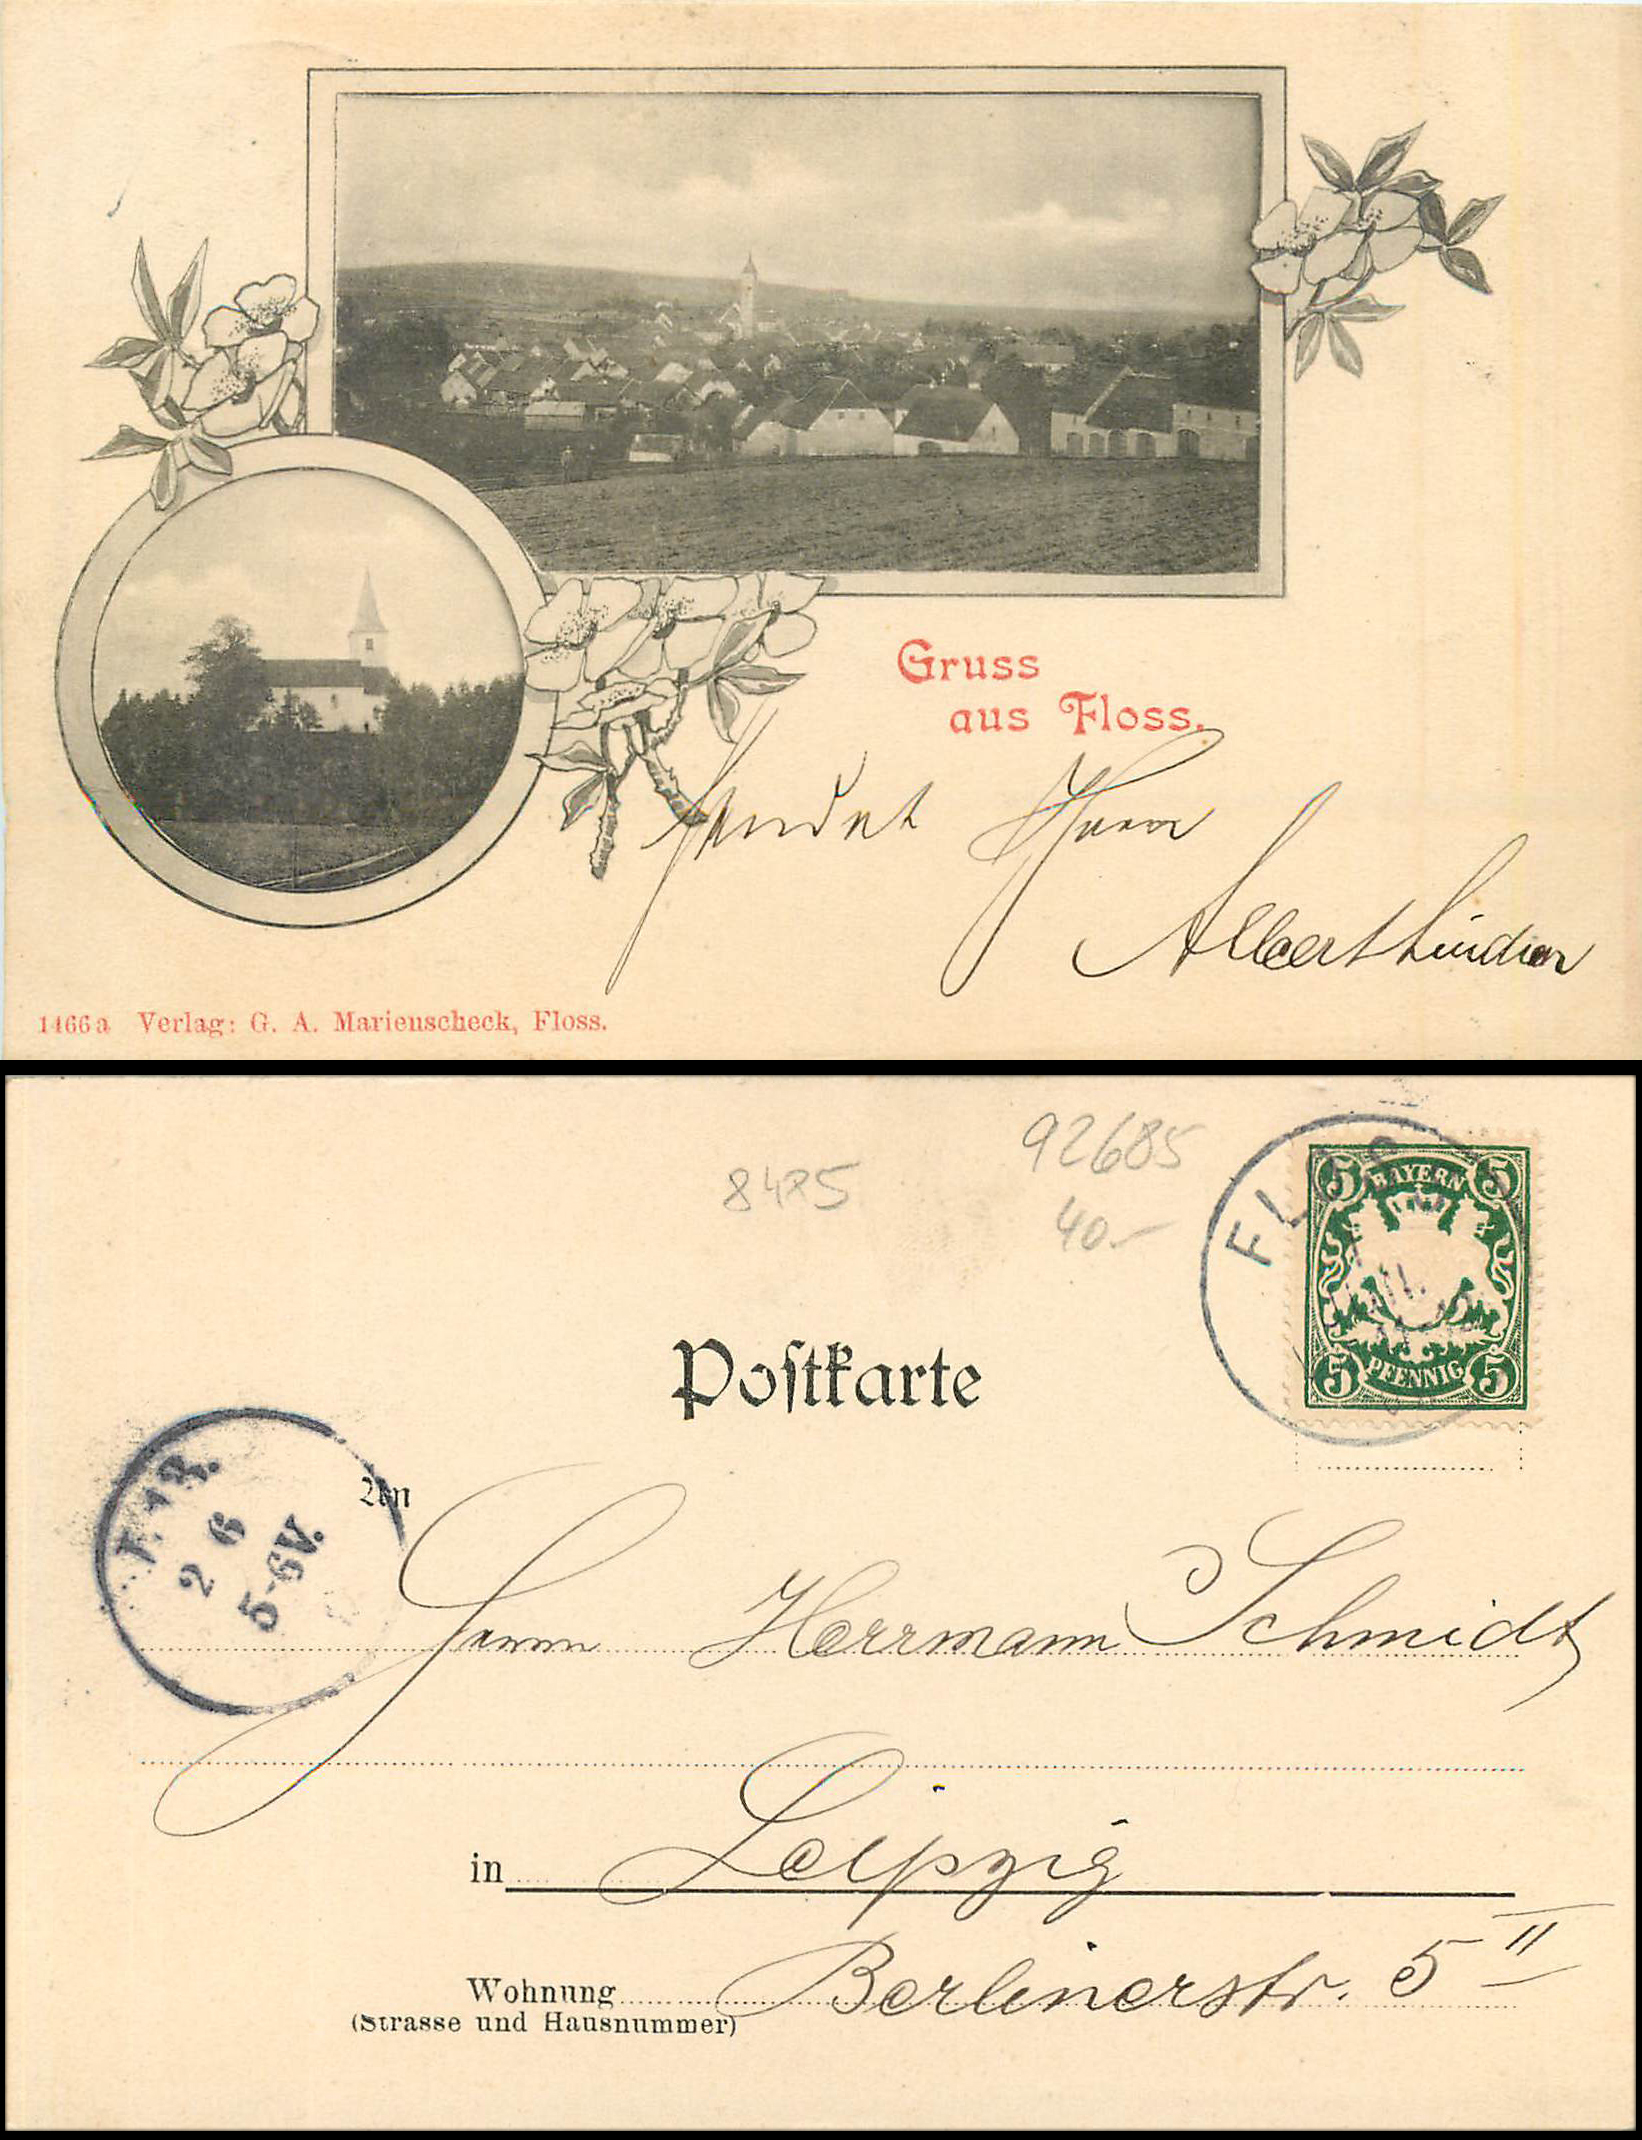 Gruss
aus Floss.
sendet Herrn
Albert Lindner
1466a Verlag: G. A. Marienscheck, Floss.
92685
40.-
5 BAYERN 5
5 PFENNIG 5
Postkarte
2 6
5-6V.
An
Herrn Herrmann Schmidt
in Leipzig
Wohnung Berlinerstr. 5 II
(Strasse und Hausnummer)